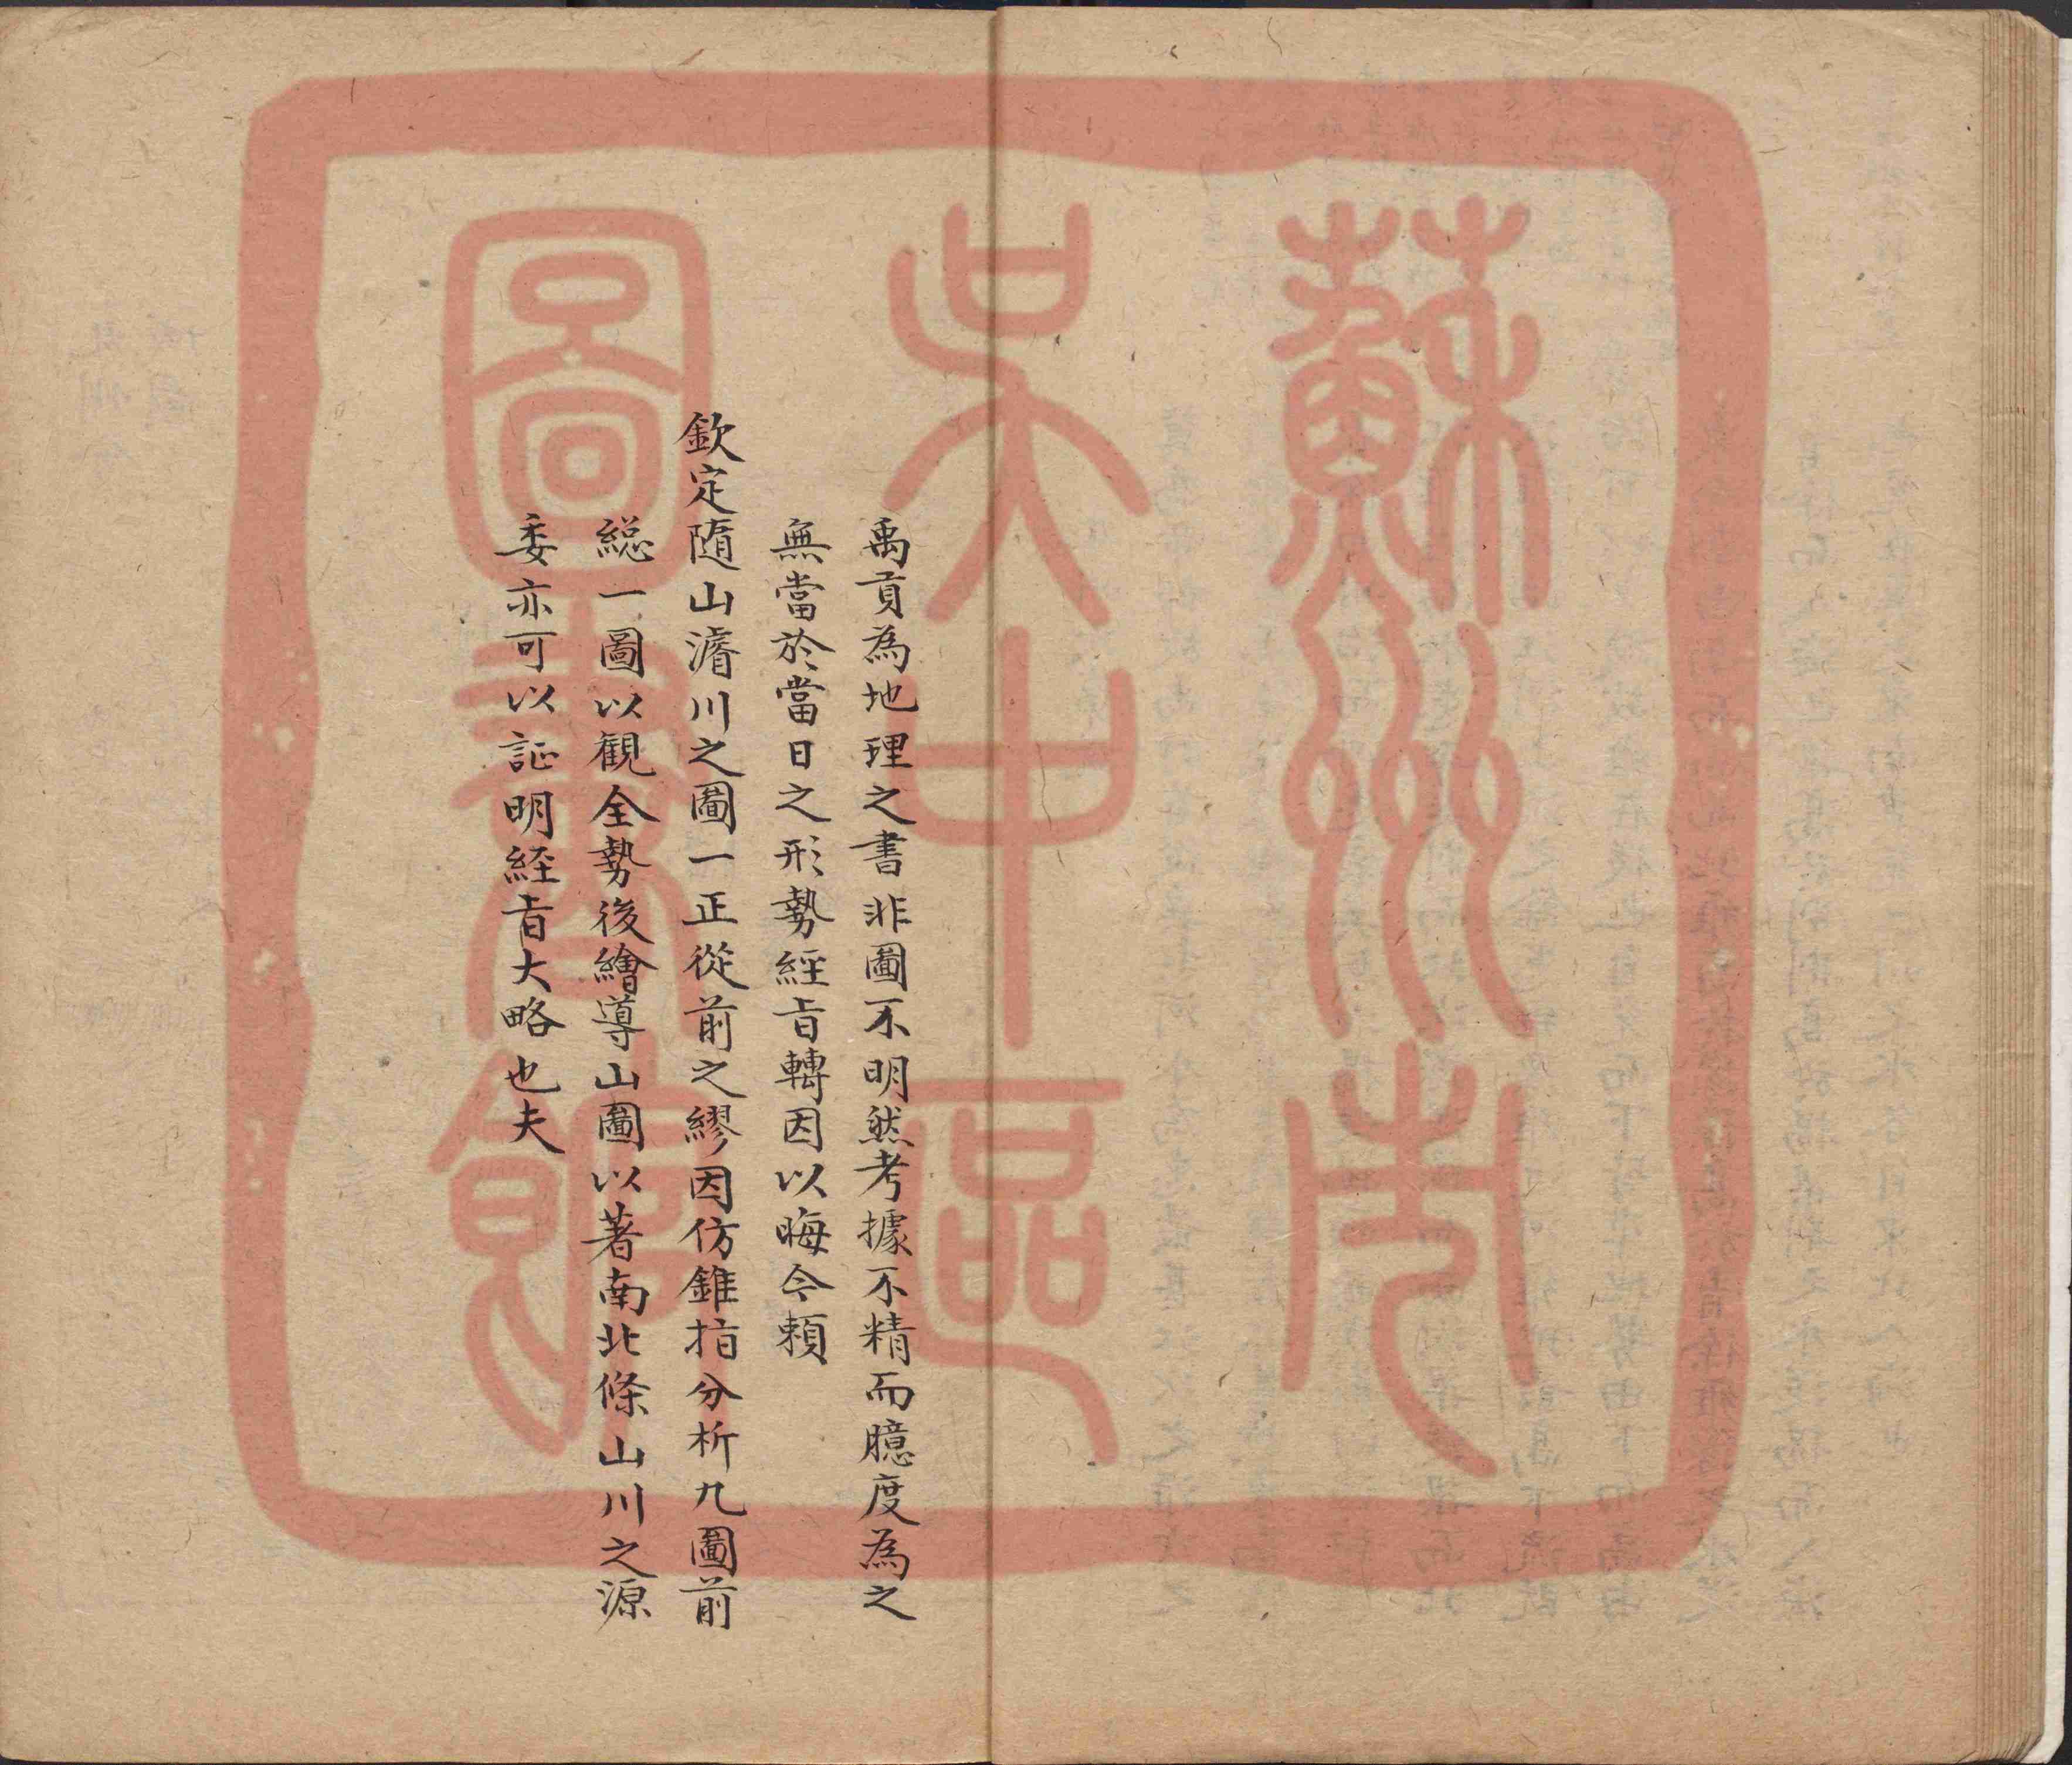 禹貢為地理之書非圖不明然考據不精而臆度為之
無當於當日之形勢經旨轉因以晦今賴
欽定隨山濬川之圖一正從前之繆因仿錐指分析九圖前
総一圖以観全勢後繪導山圖以著南北條山川之源
委亦可以証明経旨大略也夫
蘇州市
吳中區
圖書館